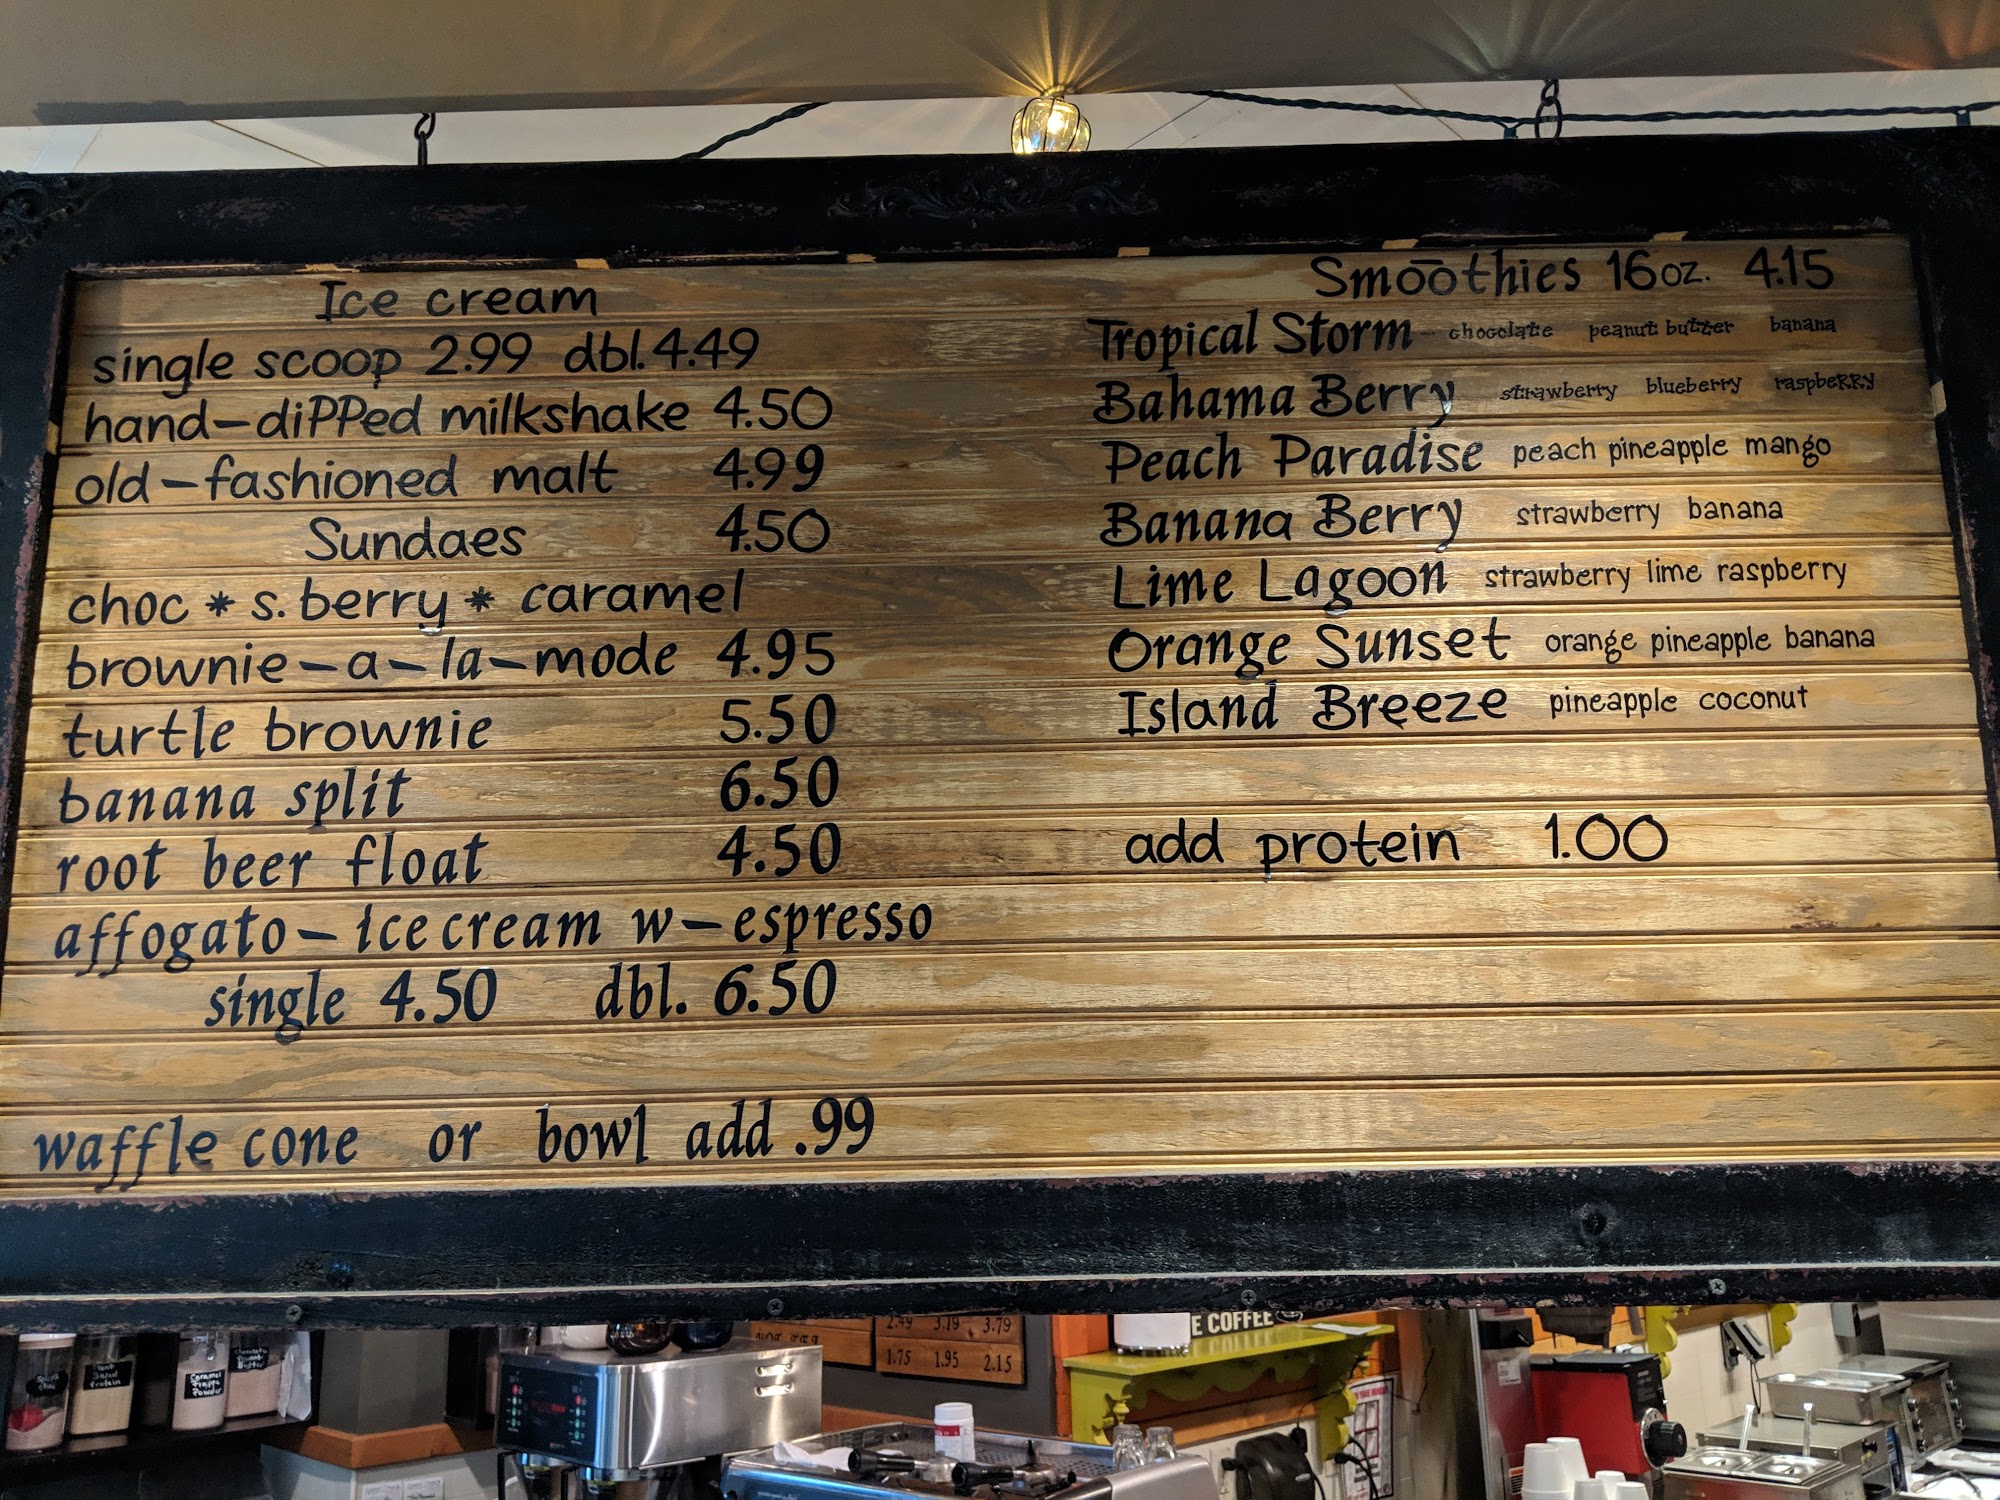 Ice cream
single scoop 2.99 dbl. 4.49
hand-diPPed milkshake 4.50
old-fashioned malt 4.99
Sundaes 4.50
choc * s. berry * caramel
brownie-a-la-mode 4.95
turtle brownie 5.50
banana split 6.50
root beer float 4.50
affogato- ice cream w-espresso
single 4.50 dbl. 6.50
waffle cone or bowl add .99
Smoothies 16oz. 4.15
Tropical Storm chocolate peanut butter banana
Bahama Berry strawberry blueberry raspbeRRy
Peach Paradise peach pineapple mango
Banana Berry strawberry banana
Lime Lagoon strawberry lime raspberry
Orange Sunset orange pineapple banana
Island Breeze pineapple coconut
add protein 1.00
2.49 3.19 3.79
1.75 1.95 2.15
E COFFEE
Caramel Frappe Powder